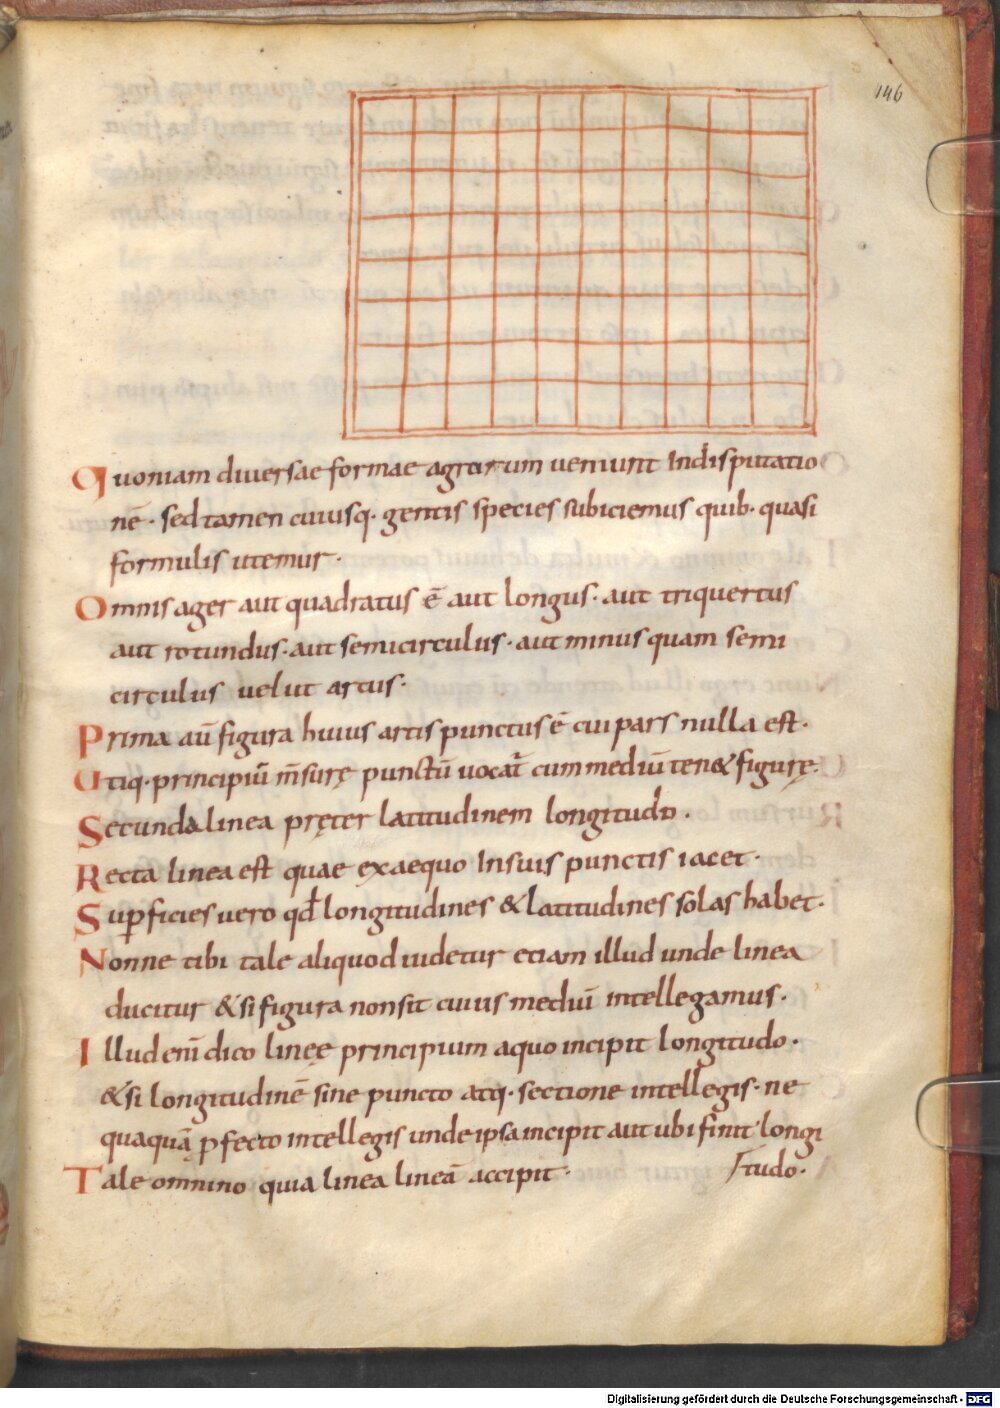 146
Quoniam diversae formae agrorum veniunt indisputatio
nē · sed tamen cuiusq· gentis species subiciemus quib· quasi
formulis utemur ·
Omnis ager aut quadratus ē aut longus · aut triquertus
aut rotundus · aut semicirculus · aut minus quam semi
circulus velut arcus ·
Prima aū figura huius artis punctus ē cui pars nulla est ·
Utiq· principiū m̄surę punctū vocat̄ cum mediū ten& figurę ·
Secunda linea pręter latitudinem longitudo ·
Recta linea est quae exaequo insuis punctis iacet ·
Sup̱ficies vero qđ longitudines & latitudines solas habet ·
Nonne tibi tale aliquod uidetur etiam illud unde linea
ducitur & si figura non sit cuius mediū intellegamus ·
Illud enī dico linęę principium a quo incipit longitudo ·
& si longitudinē sine puncto atq· sectione intellegis · ne
quaquā p̱fecto intellegis unde ipsa incipit aut ubi finit longi
Tale omnino quia linea lineā accipit · tudo ·
Digitalisierung gefördert durch die Deutsche Forschungsgemeinschaft - DFG